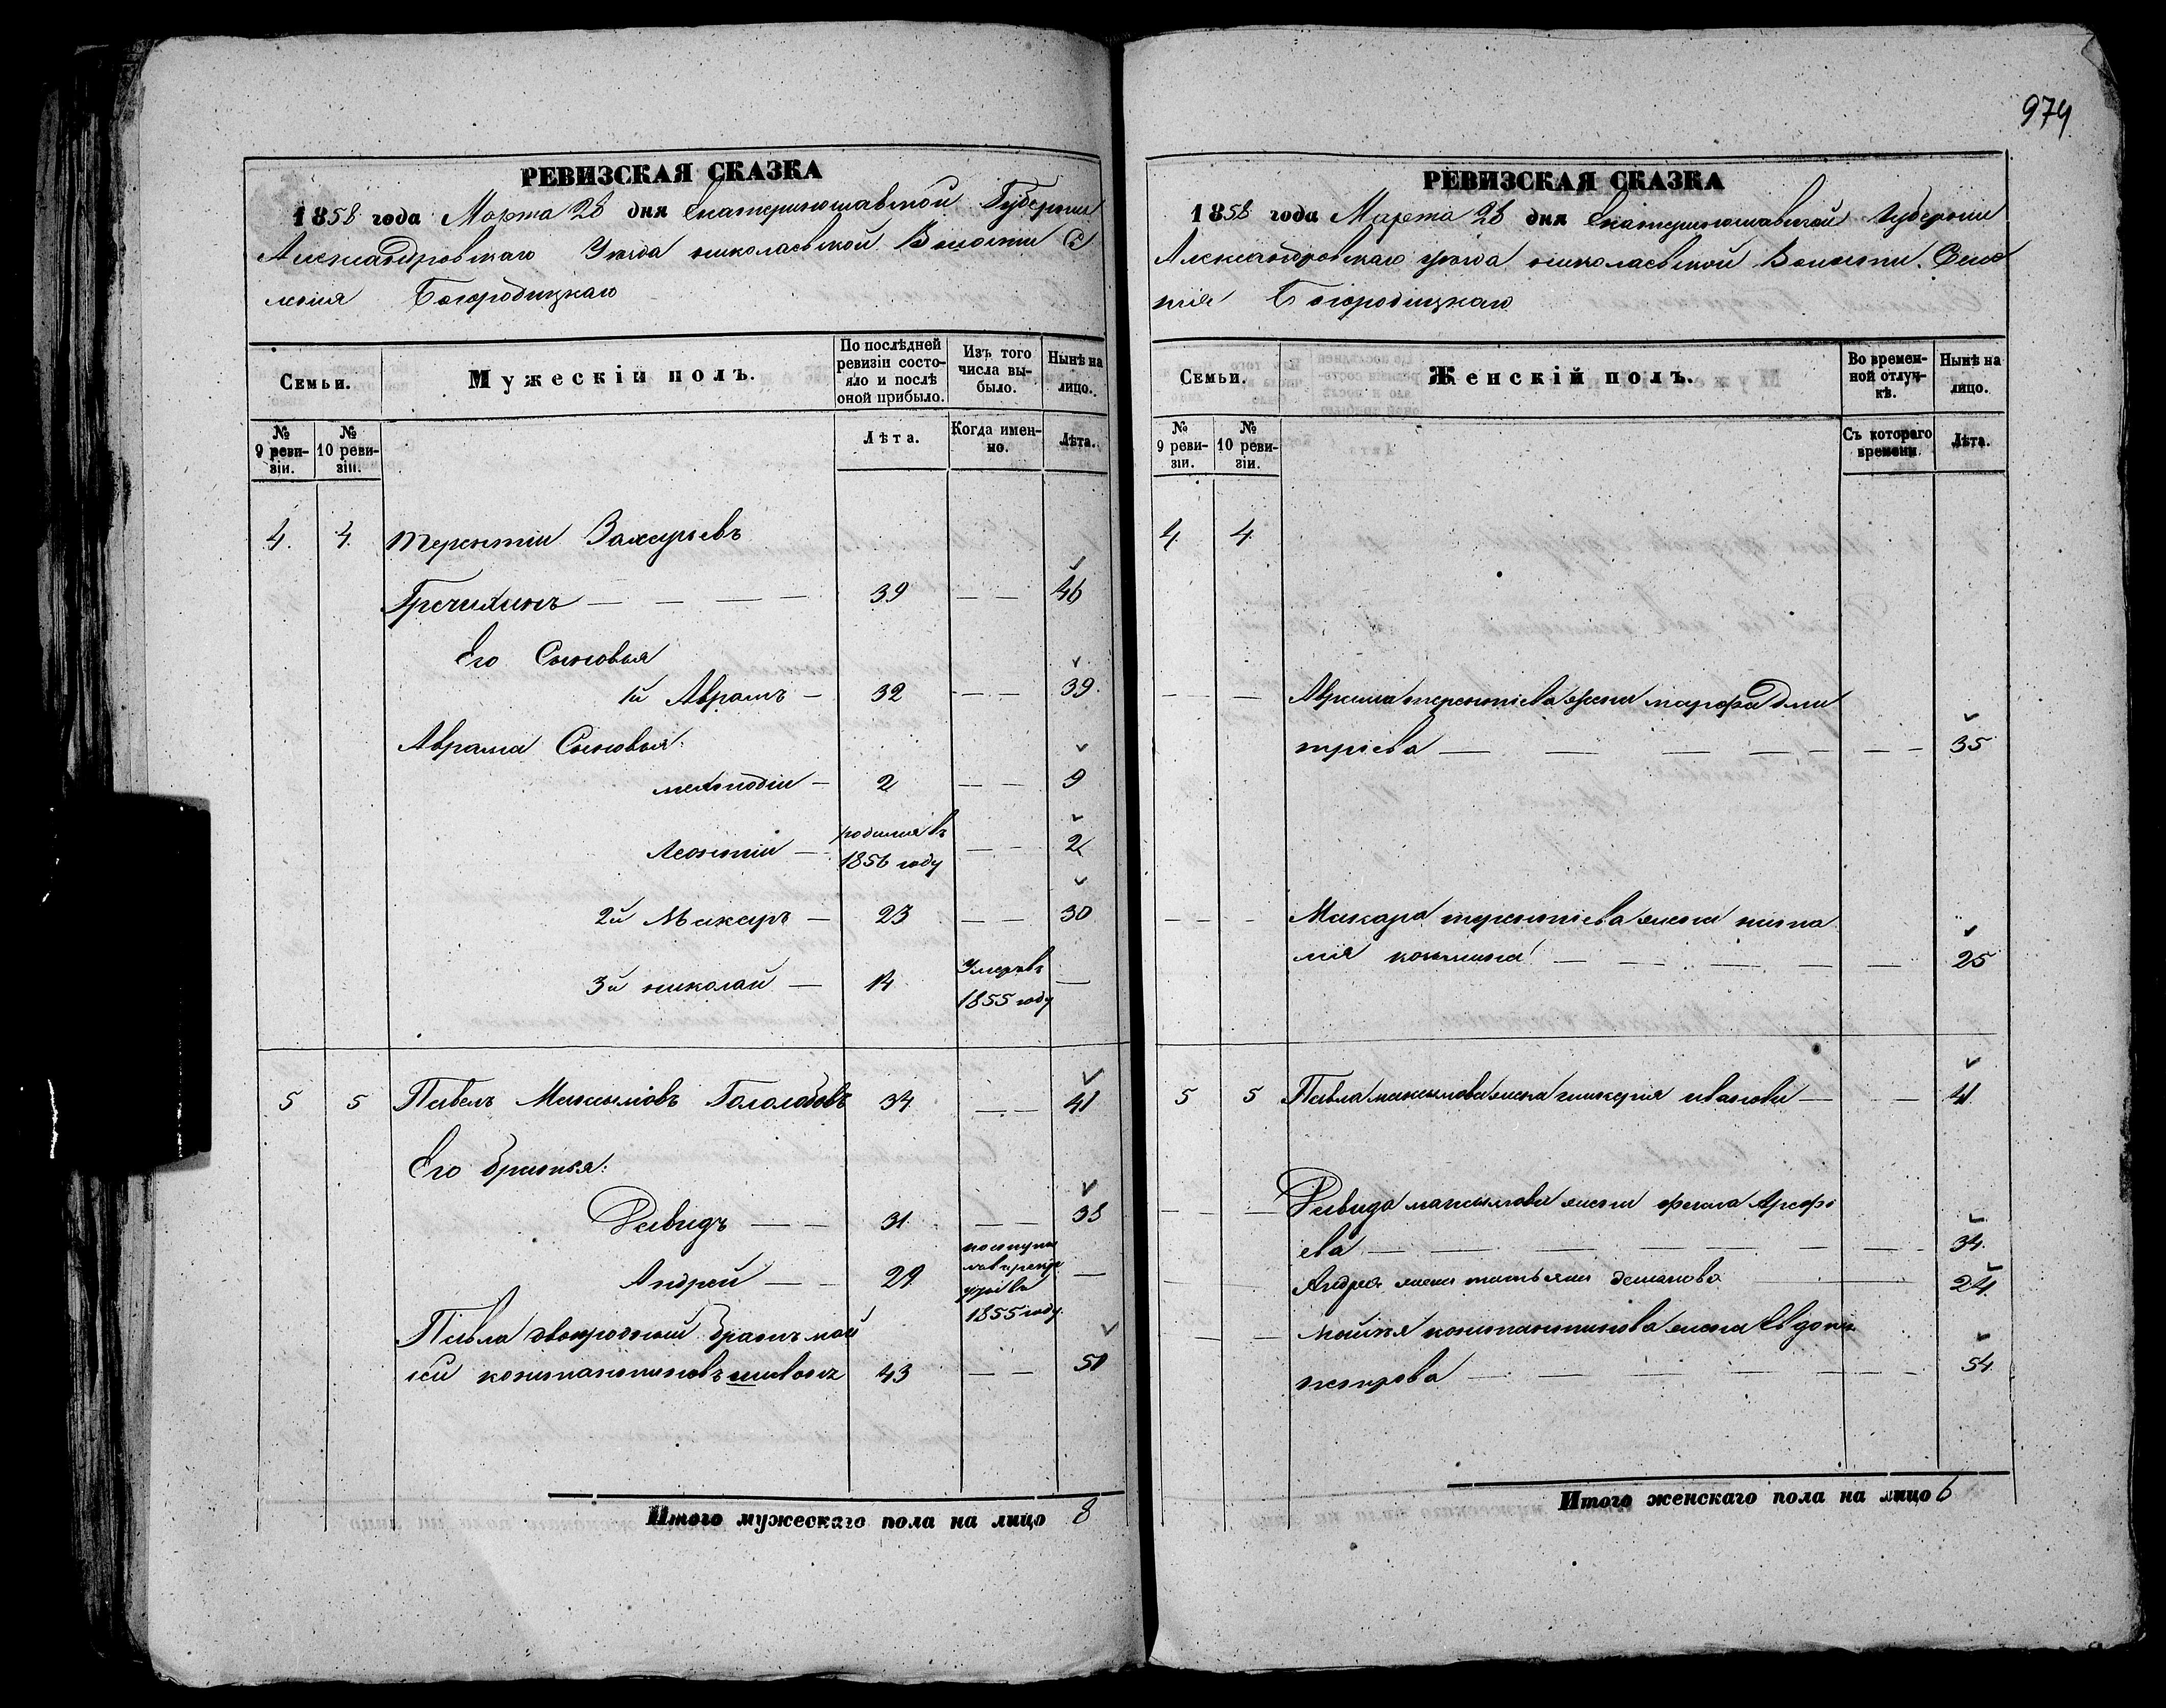 974
РЕВИЗСКАЯ СКАЗКА
1858 года Марта 28 дня Екатеринославской Губернии
Александровскаго Уезда николаевской Волости Се
ления Богородицкаго
Семьи.
Мужескій полъ.
По послѣдней ревизіи состояло и послѣ оной прибыло.
Изъ того числа выбыло.
Нынѣ на лицо.
№ 9 ревизіи.
№ 10 ревизіи.
Лѣта.
Когда именно.
Лѣта.
4. 4. Терентии Захарьевъ
Гречихинъ — — — — 39 — — 46
Его Сыновья
1й Аврамъ — 32 — — 39.
Аврама Сыновья:
мефподіи — 2 — — 9
Леонтіи — родился въ 1856 году — — 2
2й Макаръ — 23 — — 30
3й николай — 14 Умеръ въ 1855 году —
5 5 Павелъ Максимовъ Гололобовъ 34 — — 41
Его братья:
Давидъ — — 31 — — 38
Андрей — — 29 1855 году. —
Павла двоюродный братъ мой
сей константиновъ 43 — — 50
Итого мужескаго пола на лицо 8
РЕВИЗСКАЯ СКАЗКА
1858 года Марта 28 дня Екатеринославской Губернии
Александровскаго уезда николаевской Волости Селе
нія Богородицкаго
Семьи.
Женскій полъ.
Во временной отлучкѣ.
Нынѣ на лицо.
№ 9 ревизіи.
№ 10 ревизіи.
Съ котораго времени.
Лѣта.
4 4
— — Аврама терентіева жена марфа Дми
тріева — — — — — — 35
— — Макара терентіева жена ната
лія козьмина — — — — — 25
5 5 Павла максимова жена гликерия иванова — — — 41
— — Давида максимова жена фекла Арефі
ева — — — — — — — 34.
— — Андрея жена татьяна 24
— — мойсея константинова жена Евдокия
петрова — — — — — — 54.
Итого женскаго пола на лицо 6